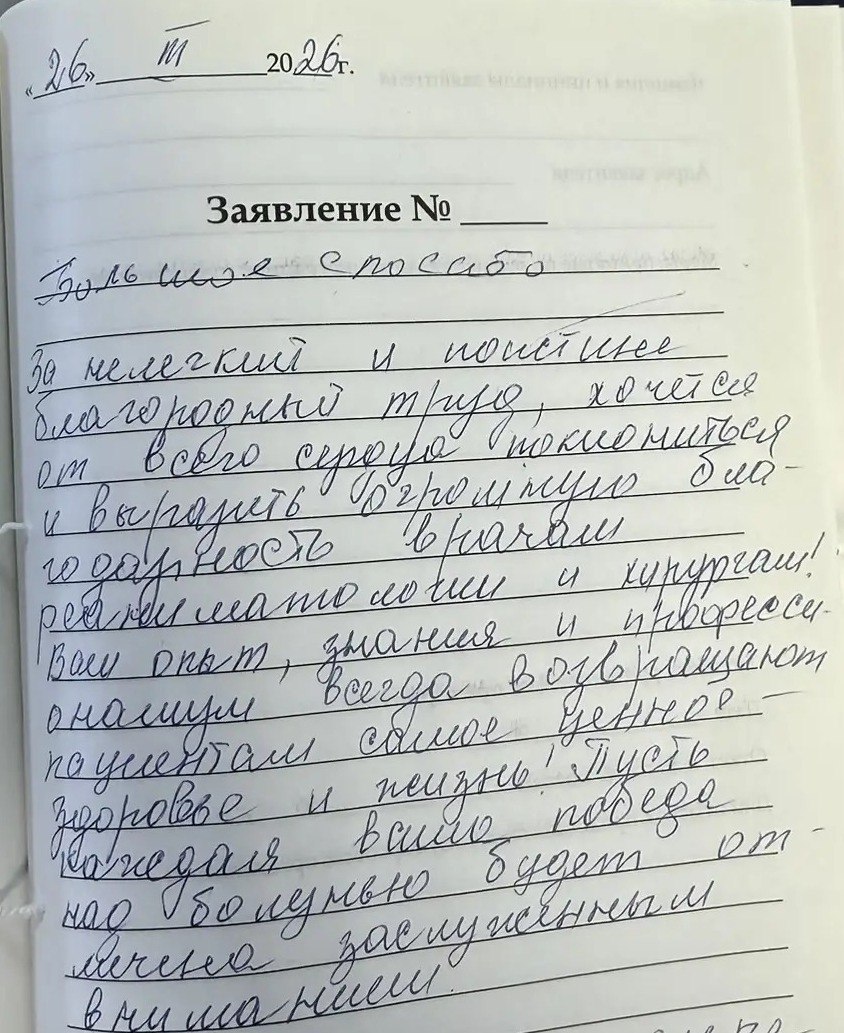 «26» III 2026 г.
Заявление № ____
Большое спосибо
За нелегкий и поистине
благородный труд, хочется
от всего сердца поклониться
и выразить огромную бла-
годарность врачам
реаниматологии и хирургам!
Ваш опыт, знания и професси-
онализм всегда возвращают
пациентам самое ценное -
здоровье и жизнь! Пусть
каждая ваша победа
над болезнью будет от-
мечена заслуженным
вниманием.